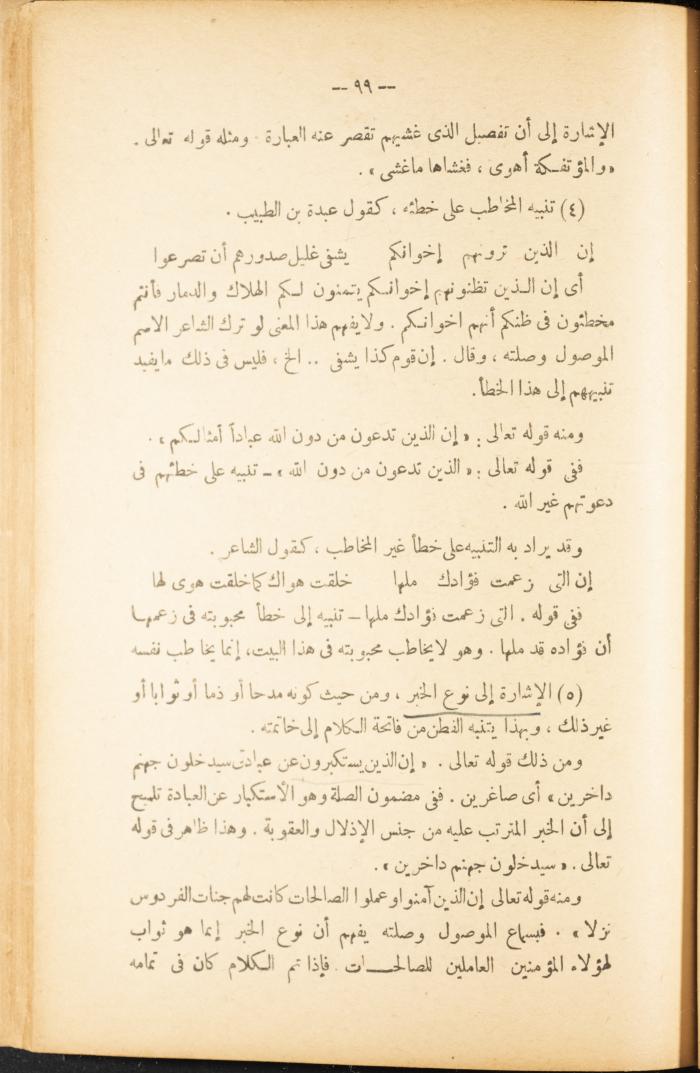 -- ٩٩ --
الإشارة إلى أن تفصيل الذى غشيهم تقصر عنه العبارة . ومثله قوله تعالى .
« والمؤتفكة أهوى ، فغشاها ماغشى » .
(٤) تنبيه المخاطب على خطئه ، كقول عبدة بن الطبيب .
إن الذين ترونهم إخوانكم يشفى غليل صدورهم أن تصرعوا
أى إن الذين تظنونهم إخوانكم يتمنون لكم الهلاك والدمار فأنتم
مخطئون فى ظنكم أنهم اخوانكم . ولايفهم هذا المعنى لو ترك الشاعر الاسم
الموصول وصلته ، وقال . إن قوم كذا يشفى .. الخ ، فليس فى ذلك مايفيد
تنبيههم إلى هذا الخطأ .
ومنه قوله تعالى : « إن الذين تدعون من دون الله عباداً أمثالكم » .
ففى قوله تعالى : « الذين تدعون من دون الله » – تنبيه على خطئهم فى
دعوتهم غير الله .
وقد يراد به التنبيه على خطأ غير المخاطب ، كقول الشاعر .
إن التى زعمت فؤادك ملها خلقت هواك كما خلقت هوى لها
ففى قوله . التى زعمت فؤادك ملها – تنبيه إلى خطأ محبوبته فى زعمها
أن فؤاده قد ملها . وهو لايخاطب محبوبته فى هذا البيت، إنما يخاطب نفسه
(٥) الإشارة إلى نوع الخبر ، ومن حيث كونه مدحا أو ذما أو ثوابا أو
غير ذلك ، وبهذا يتنبه الفطن من فاتحة الكلام إلى خاتمته .
ومن ذلك قوله تعالى . « إن الذين يستكبرون عن عبادتى سيدخلون جهنم
داخرين » أى صاغرين . ففى مضمون الصلة وهو الأستكبار عن العبادة تلميح
إلى أن الخبر المترتب عليه من جنس الإذلال والعقوبة . وهذا ظاهر فى قوله
تعالى . « سيدخلون جهنم داخرين » .
ومنه قوله تعالى إن الذين آمنوا وعملوا الصالحات كانت لهم جنات الفردوس
نزلا » . فبسماع الموصول وصلته يفهم أن نوع الخبر إنما هو ثواب
لهؤلاء المؤمنين العاملين للصالحات . فإذا تم الكلام كان فى تمامه